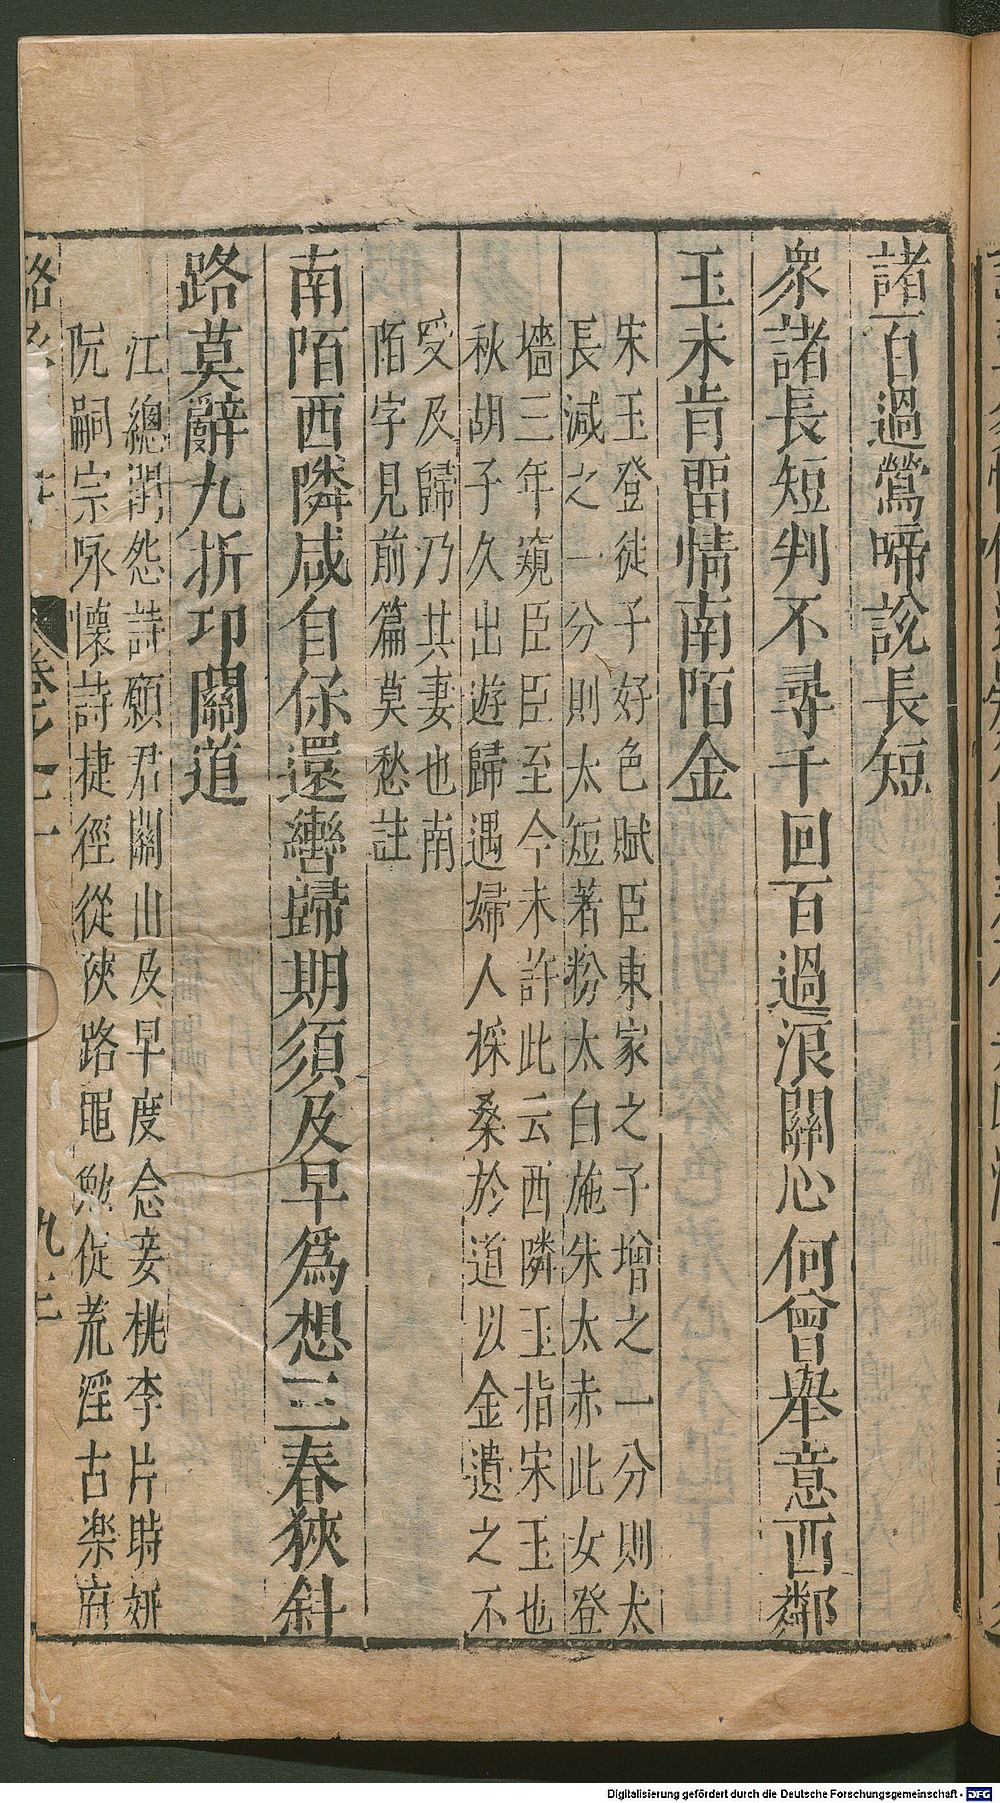 諸百過鶯啼說長短
衆諸長短判不尋千回百過浪關心何曾舉意西鄰
玉未肯留情南陌金
宋玉登徒子好色賦臣東家之子增之一分則太
長減之一分則太短著粉太白施朱太赤此女登
墻三年窺臣臣至今未許此云西隣玉指宋玉也
秋胡子久出遊歸遇婦人採桑於道以金遺之不
受及歸乃其妻也南
陌字見前篇莫愁註
南陌西隣咸自保還轡歸期須及早爲想三春狹斜
路莫辭九折邛關道
江總閨怨詩願君關山及早度念妾桃李片時妍
阮嗣宗咏懷詩捷徑從狹路僶勉從荒淫古楽府
卷之一
九二
Digitalisierung gefördert durch die Deutsche Forschungsgemeinschaft - DFG